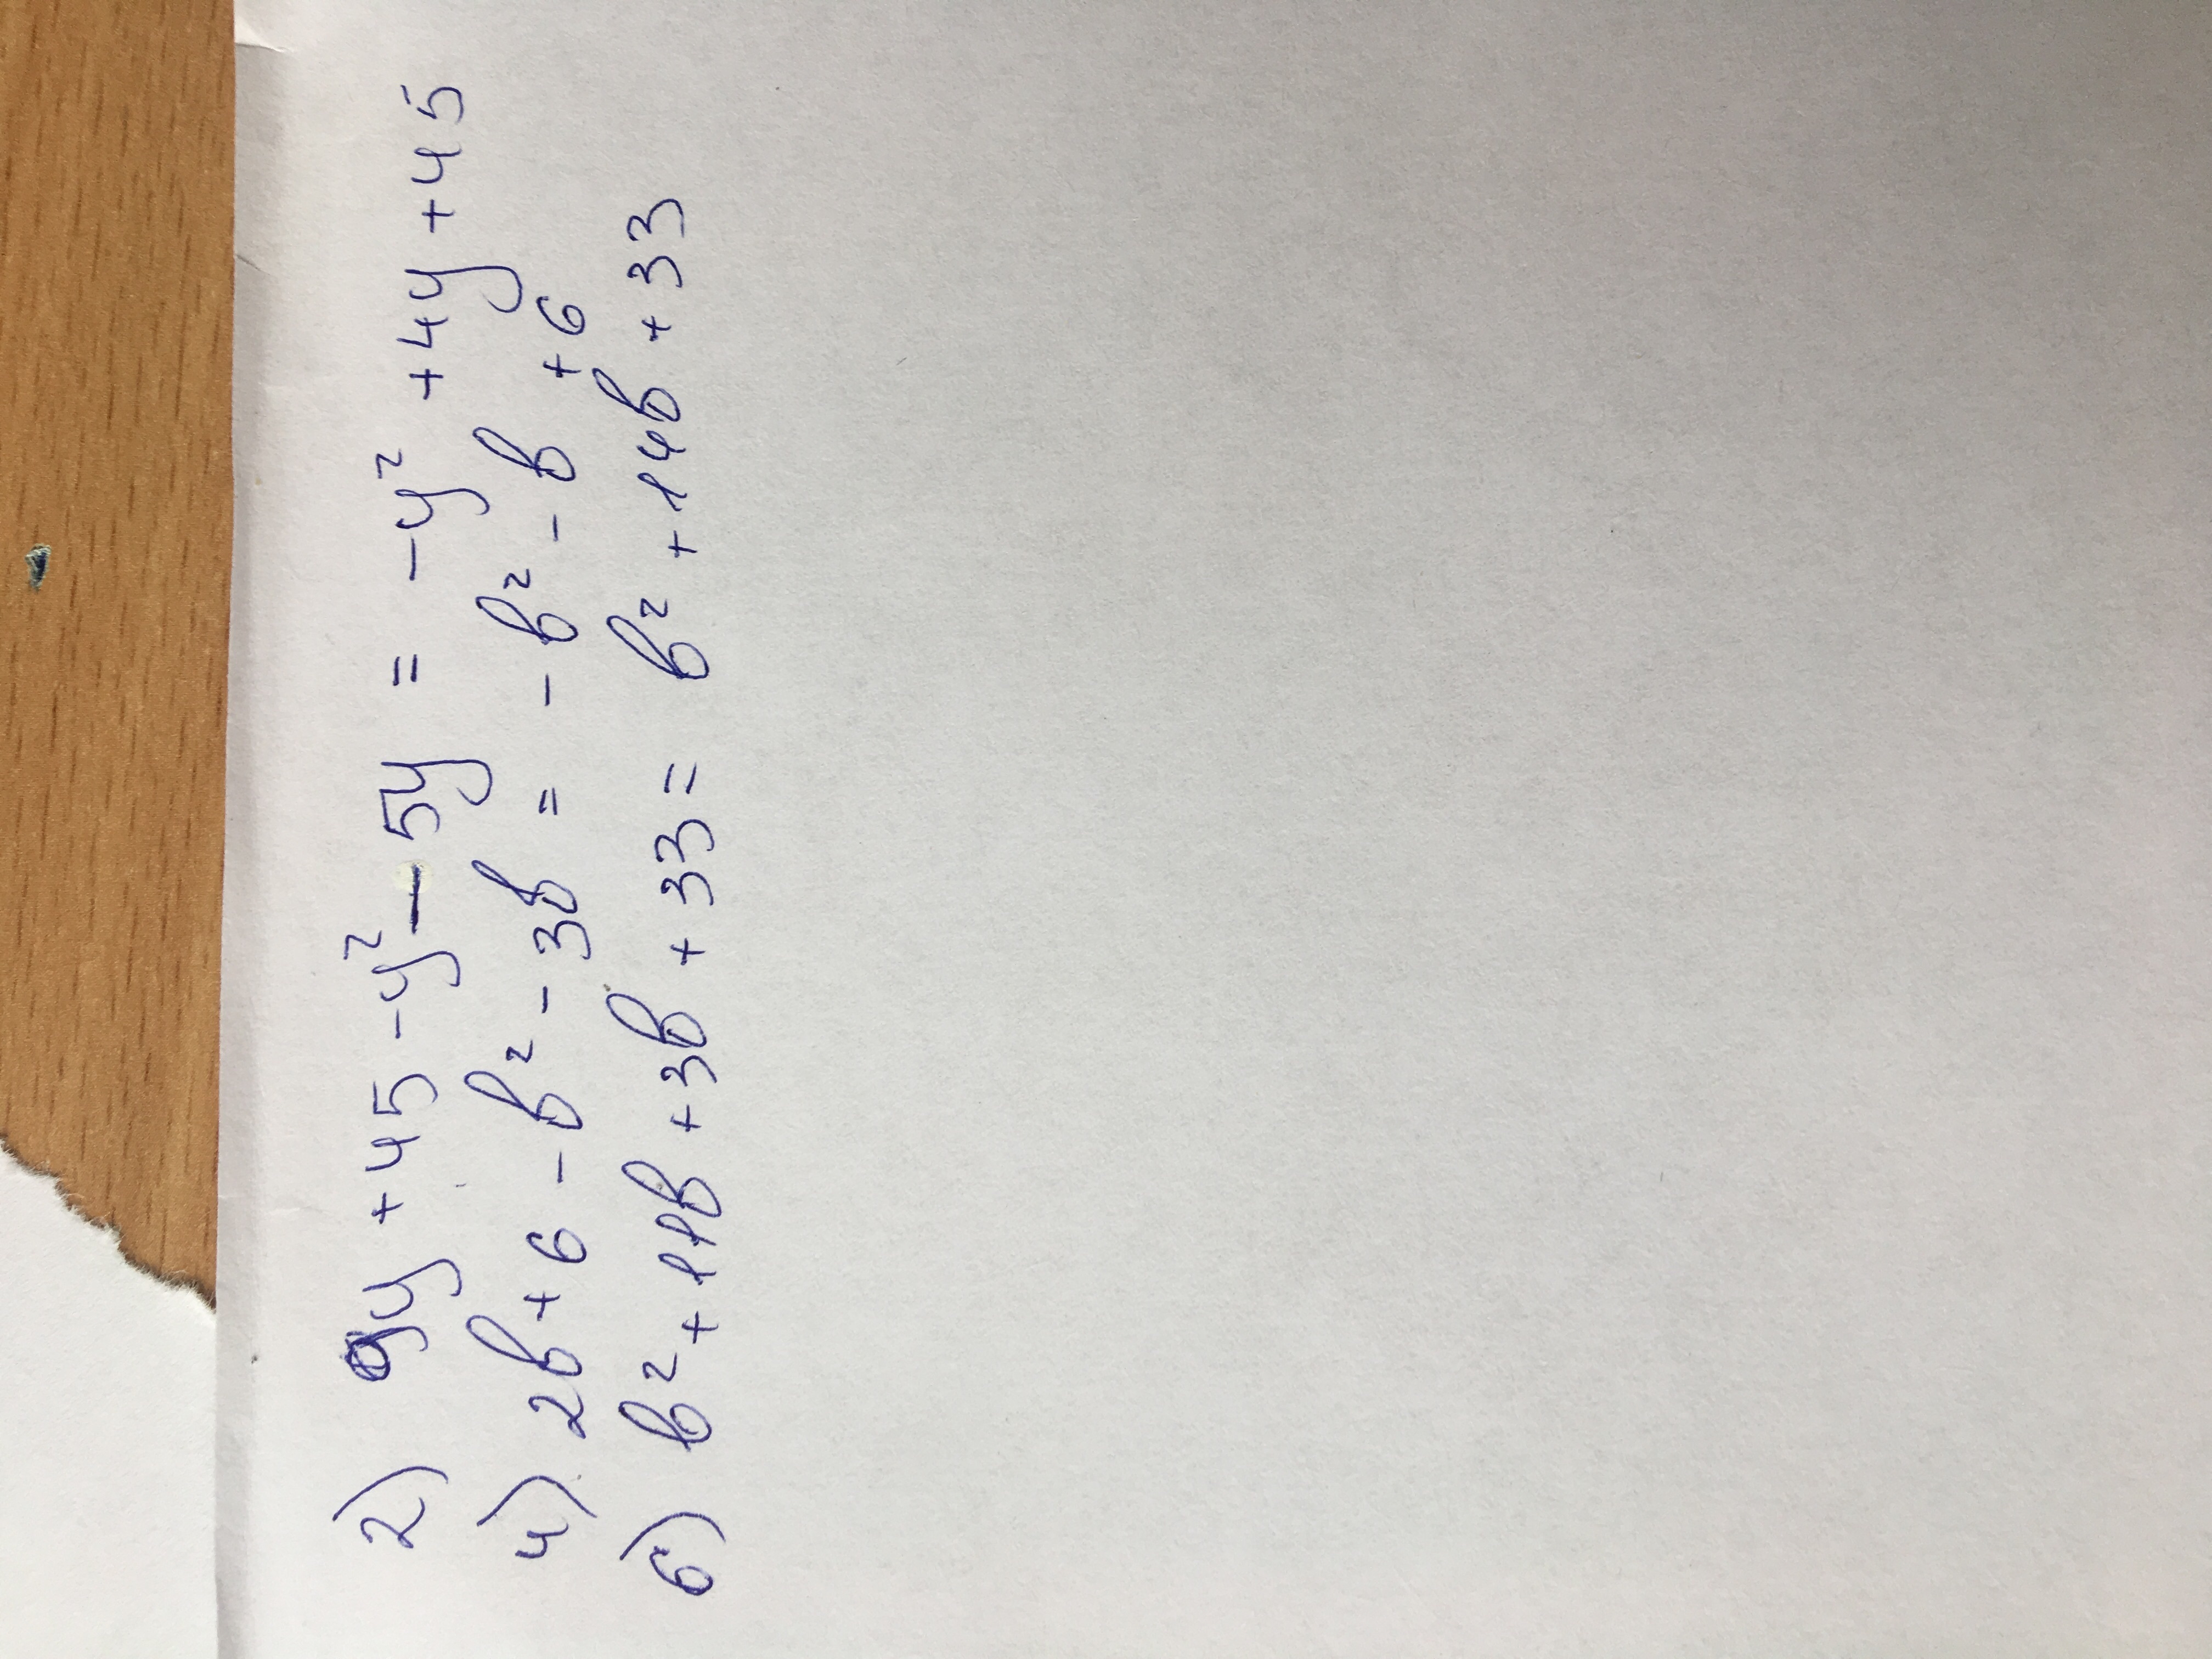 2) 9y + 45 - y² - 5y = - y² + 4y + 45
4) 2b + 6 - b² - 3b = - b² - b + 6
6) b² + 11b + 3b + 33 = b² + 14b + 33